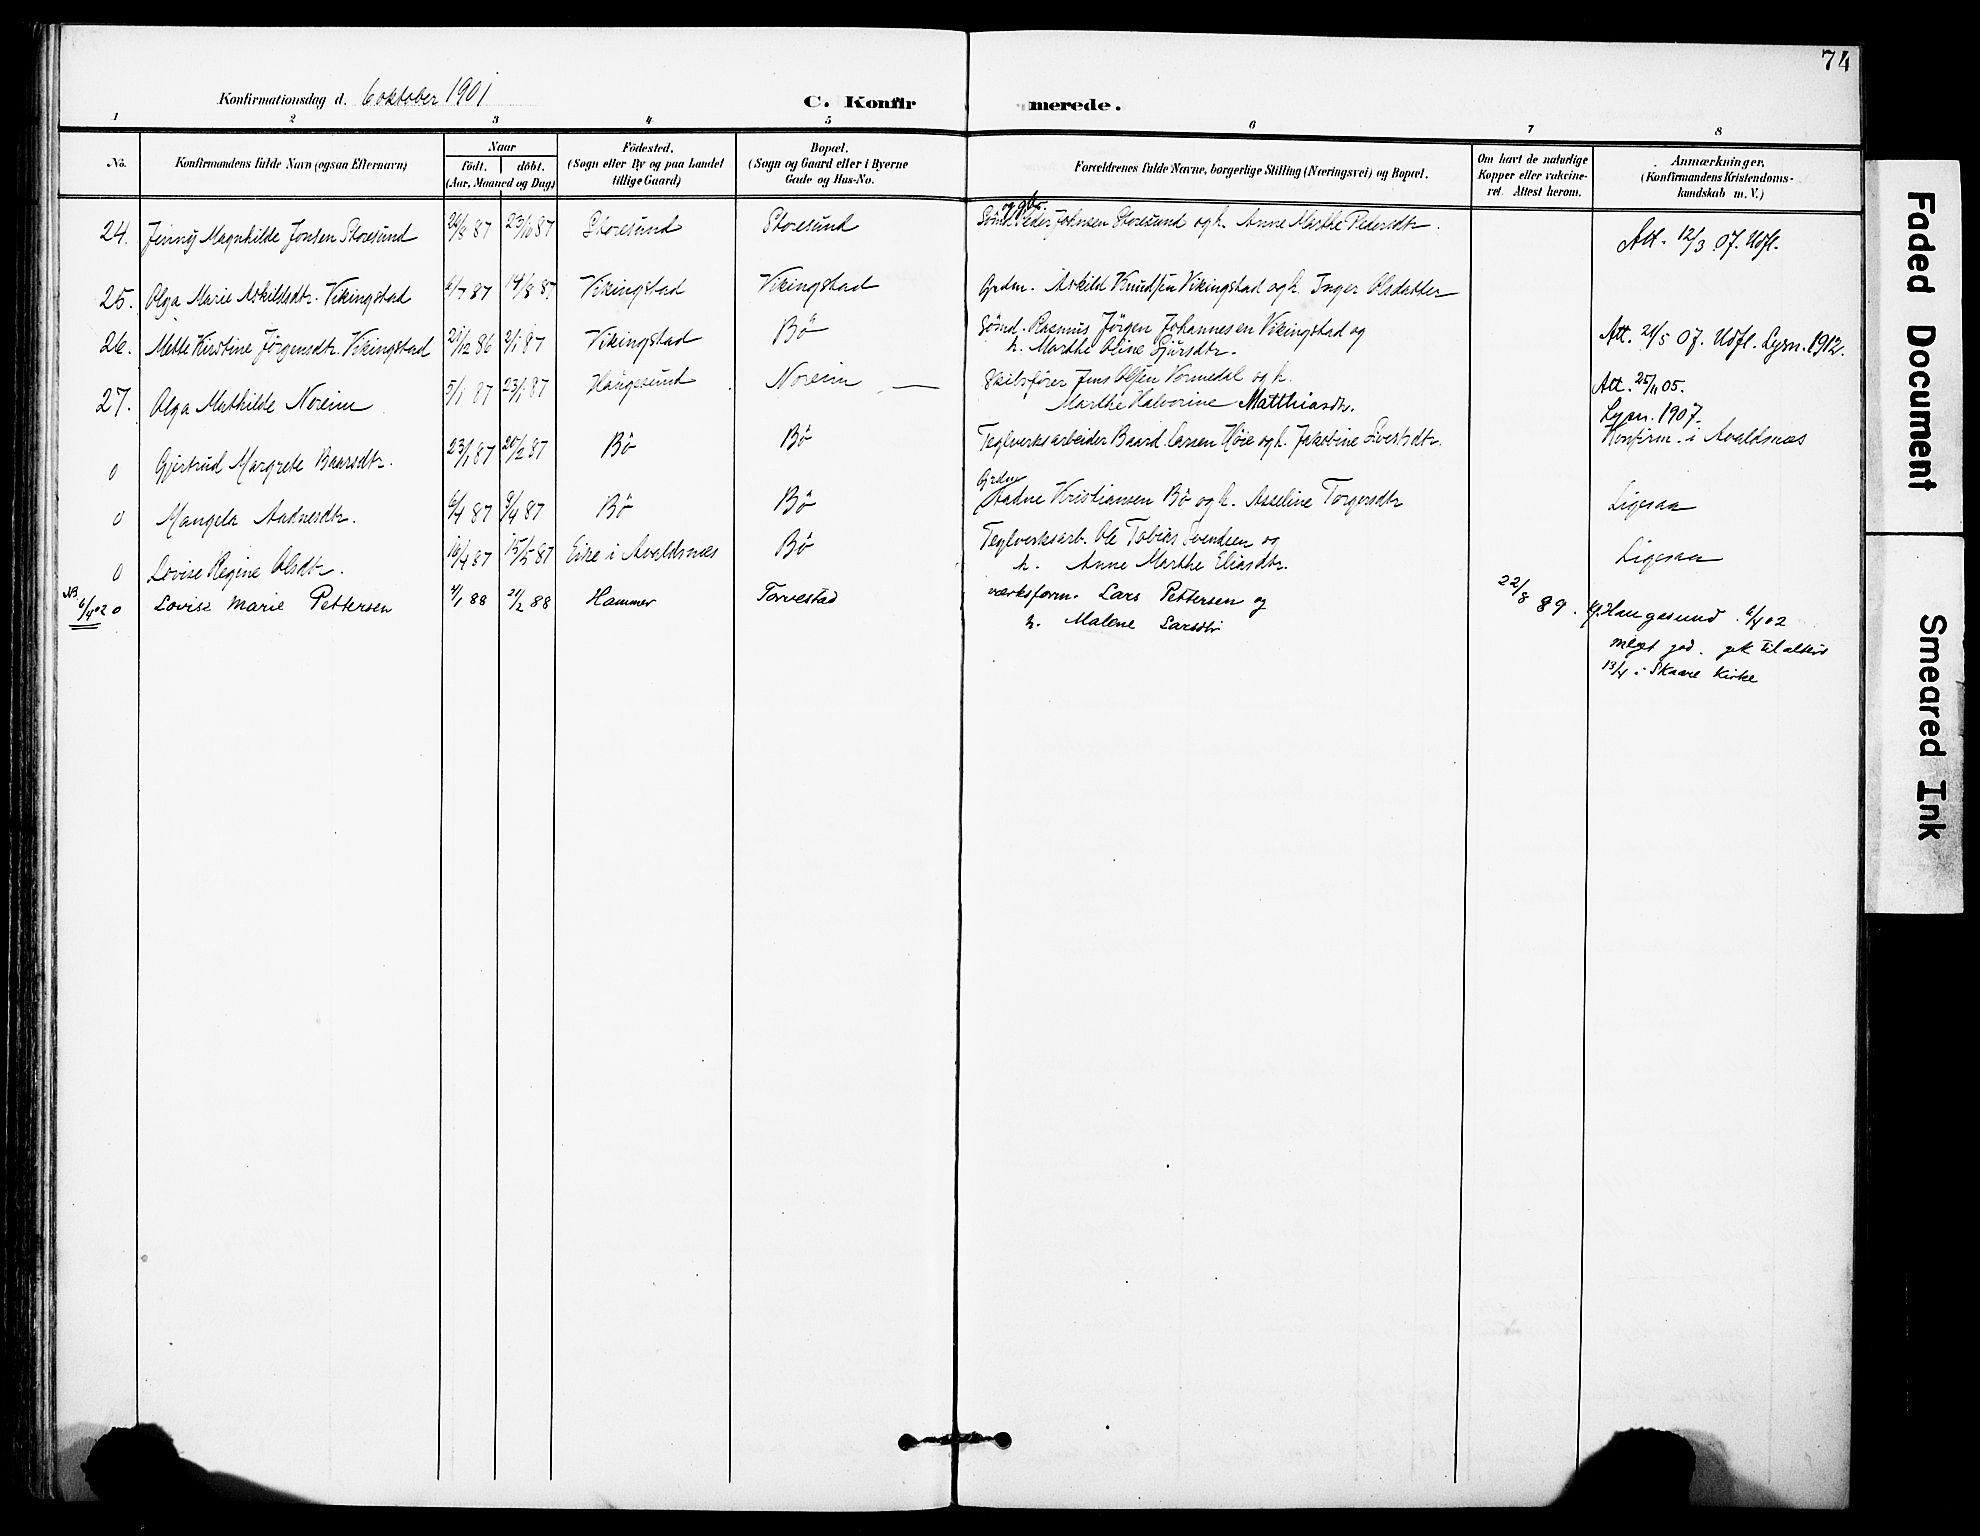 74
Konfirmationsdag d. 6 oktober 1901
C. Konfirmerede.
1 2 3 4 5 6 7 8
No.
Konfirmandens fulde Navn (ogsaa Efternavn)
Naar
födt. döbt.
(Aar, Maaned og Dag)
Födested.
(Sogn eller By og paa Landet
tillige Gaard)
Bopæl.
(Sogn og Gaard eller i Byerne
Gade og Hus-No.
Forældrenes fulde Navne, borgerlige Stilling (Næringsvei) og Bopæl.
Om havt de naturlige
Kopper eller vakcine-
ret. Attest herom.
Anmærkninger.
(Konfirmandens Kristendoms-
kundskab m. V.)
og gbr.
24. Jenny Magnhilde Jonsen Storesund 26/8 87 23/10 87 Storesund Storesund Sömd. Peder Johnsen Storesund og h. Anne Marthe Pedersdtr. Att. 12/3 07. Udfl.
25. Olga Marie Askildsdtr. Vikingstad 6/7 87 14/8 87 Vikingstad Vikingstad Grdm. Askild Knudsen Vikingstad og h. Inger Olsdatter
26. Mette Kirstine Jörgensdtr. Vikingstad 21/12 86 2/1 87 Vikingstad Bö Sömd. Rasmus Jörgen Johannesen Vikingstad og
h. Marthe Oline Sjursdtr.
Att. 21/5 07. Udfl. Lysn. 1912.
27. Olga Mathilde Noreim 5/1 87 23/1 87 Haugesund Noreim — Skibsförer Jens Olsen Vormedal og h.
Marthe Halvorine Matthiasdtr.
Att. 25/11 05.
Lysn. 1907.
0 Gjertrud Margrete Baarsdtr. 23/1 87 20/2 87 Bö Bö Teglverksarbeider Baard Larsen Höie og h. Jakobine Sivertsdtr. Konfirm. i Avaldsnæs
Grdm
0 Mangela Aadnesdtr. 6/4 87 9/4 87 Bö Bö Aadne Kristiansen Bö og h. Asseline Torgersdtr Ligesaa
0 Lovise Regine Olsdtr. 16/4 87 15/5 87 Eike i Avaldsnæs Bö Teglverksarb. Ole Tobias Svendsen og
h. Anne Marthe Eliasdtr.
Ligesaa
NB
6/4 02 0 Lovise Marie Pettersen 4/1 88 21/2 88 Hammer Torvestad værksform. Lars Pettersen og
h. Malene Larsdtr
22/8 89. Haugesund 6/4 02
meget god. gik til alters
13/4 i Skaare Kirke
Faded Document
Smeared Ink